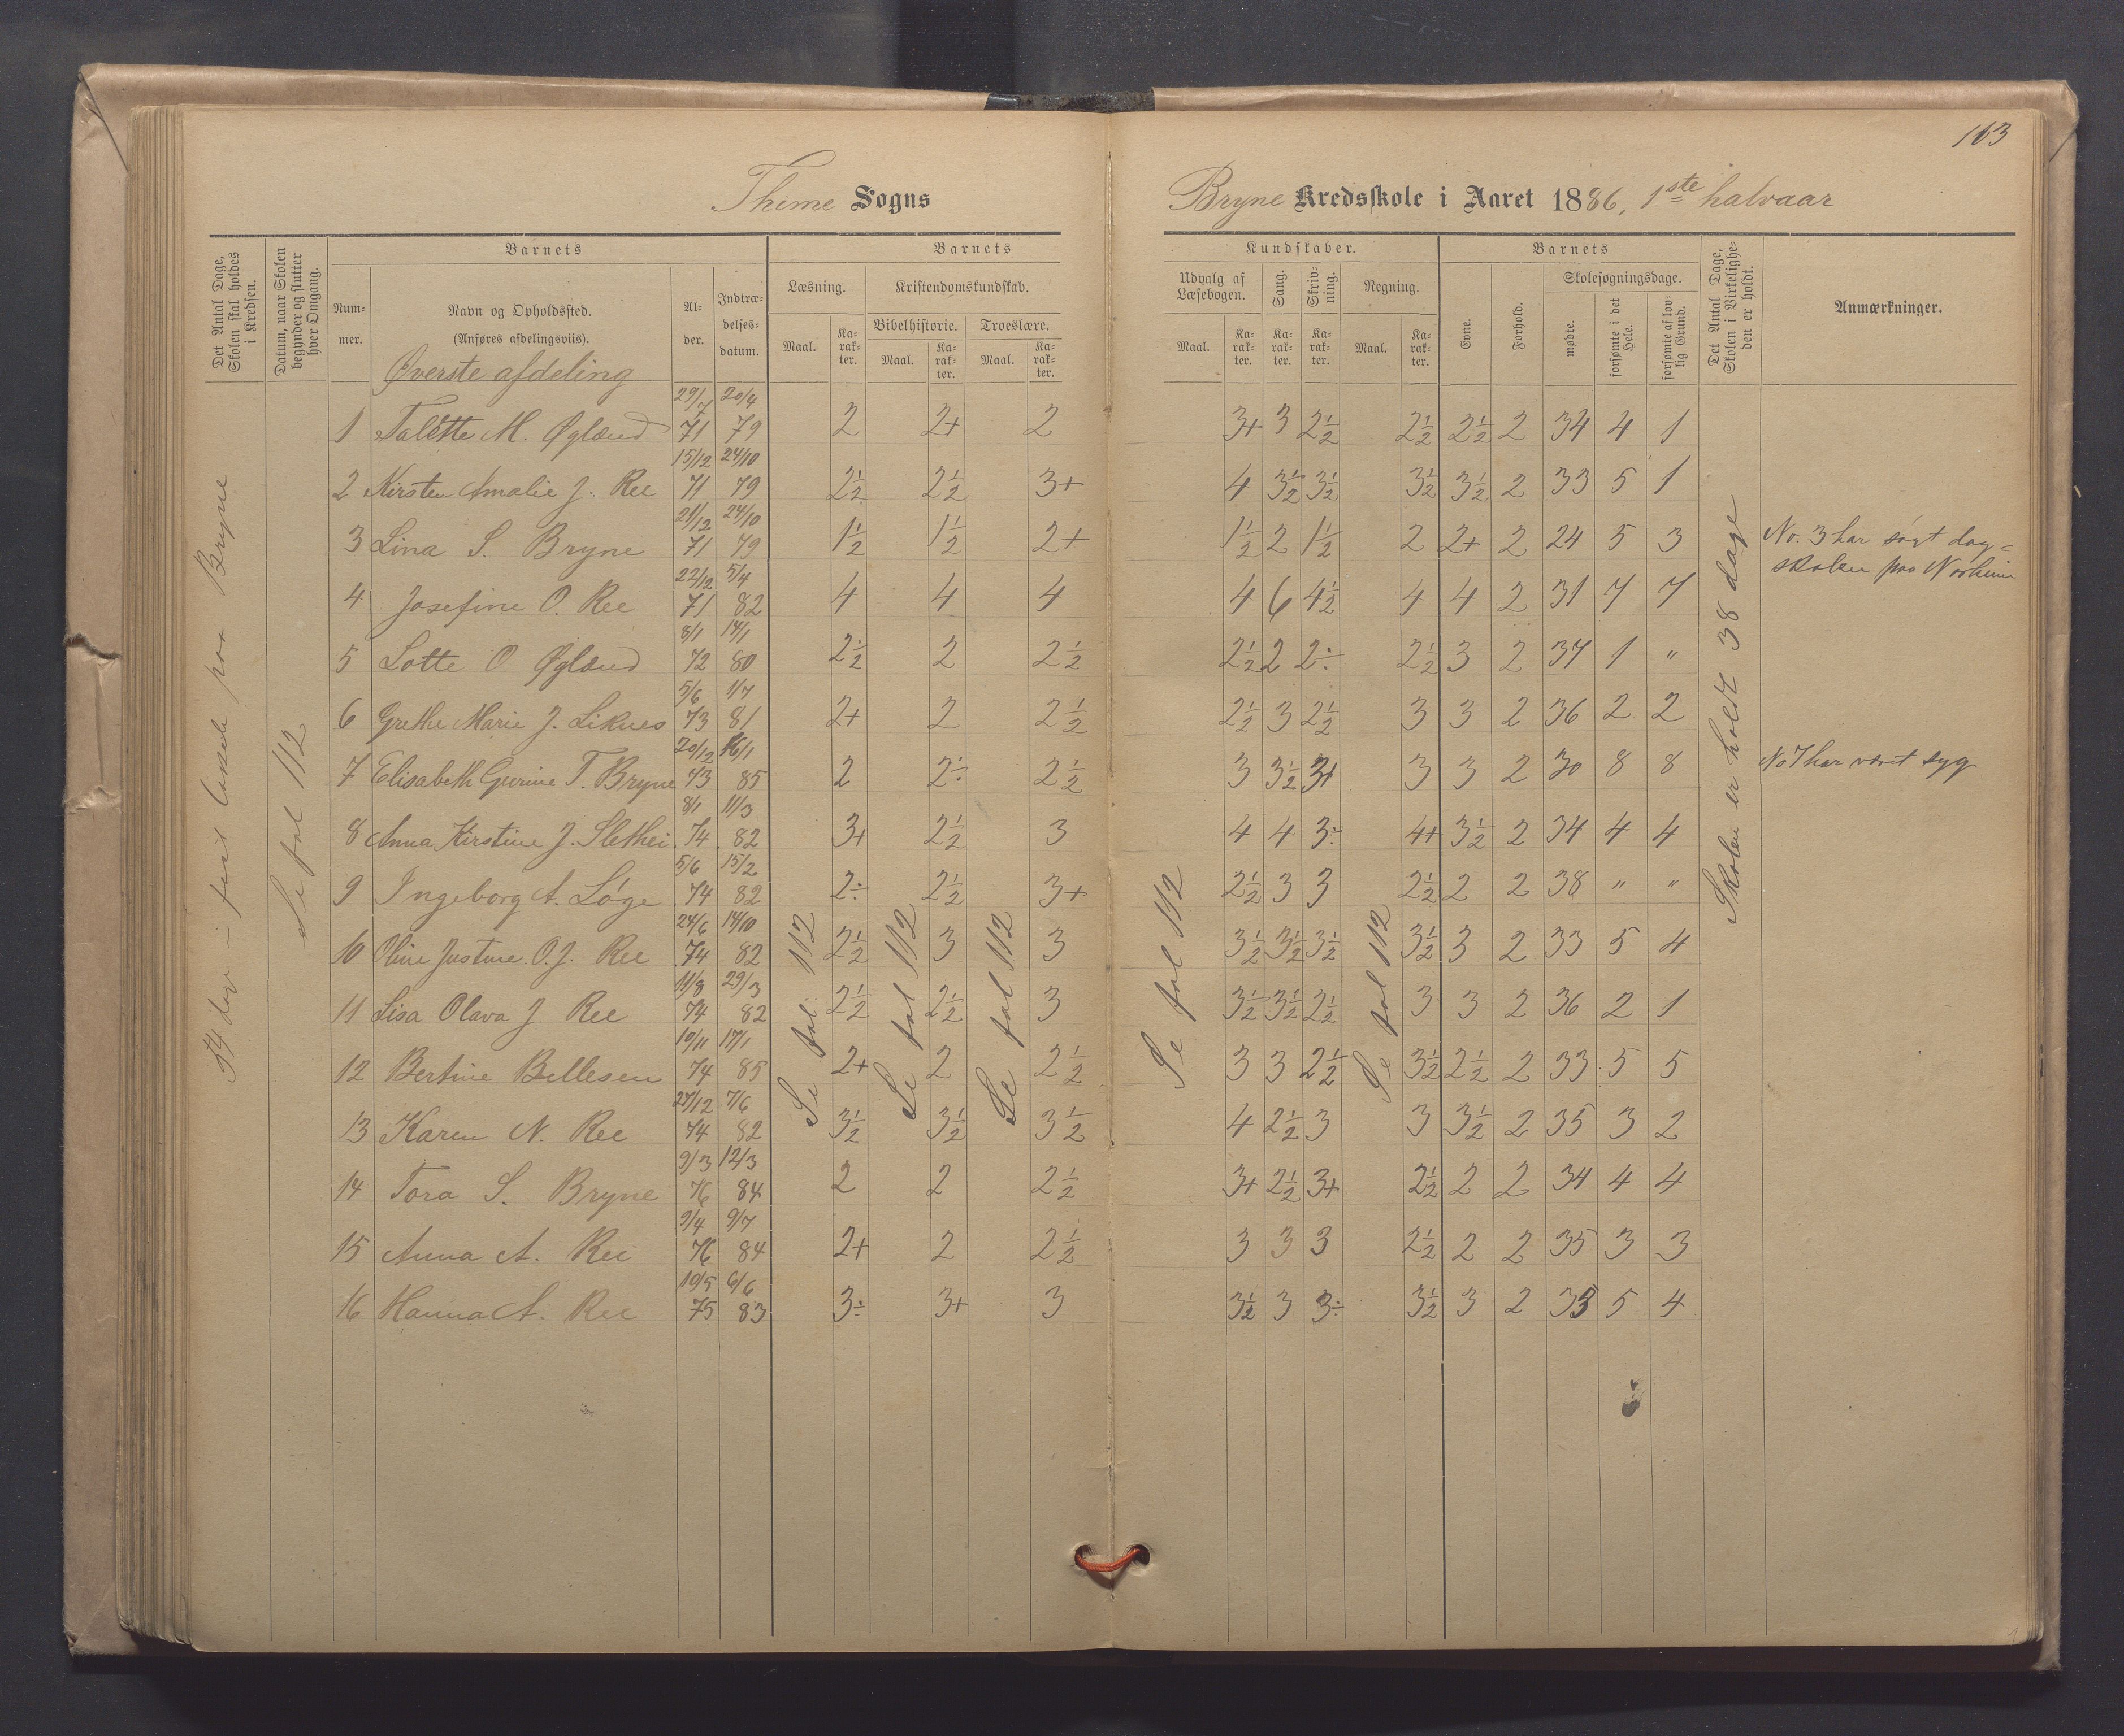 163
Thime Sogns
Bryne Kredsskole i Aaret 1886, 1ste halvaar
Det Antal Dage, Skolen skal holdes i Kredsen.
Datum, naar Skolen begynder og slutter hver Omgang.
Barnets
Nummer.
Navn og Opholdssted.
(Anføres afdelingsviis).
Alder.
Indtrædelsesdatum.
Barnets
Læsning.
Maal.
Karakter.
Kristendomskundskab.
Bibelhistorie.
Maal.
Karakter.
Troeslære.
Maal.
Karakter.
Kundskaber.
Udvalg af Læsebogen.
Maal.
Karakter.
Sang.
Karakter.
Skrivning.
Karakter.
Regning.
Maal.
Karakter.
Barnets
Evne.
Forhold.
Skolesøgningsdage.
mødte.
forsømte i det Hele.
forsømte af lovlig Grund.
Det Antal Dage, Skolen i Virkeligheden er holdt.
Anmærkninger.
Øverste afdeling
1 Talette M. Øglænd 29/7 71 20/4 79 2 2+ 2 3+ 3 2½ 2½ 2½ 2 34 4 1
2 Kirsten Amalie J. Ree 15/12 71 24/10 79 2½ 2½ 3+ 4 3½ 3½ 3½ 3½ 2 33 5 1
3 Lina S. Bryne 21/12 71 24/10 79 1½ 1½ 2+ 1½ 2 1½ 2 2+ 2 24 5 3 No. 3 har søgt dag=
skolen paa Norheim
4 Josefine O. Ree 22/12 71 5/4 82 4 4 4 4 6 4½ 4 4 2 31 7 7
5 Lotte O Øglænd 8/1 72 14/1 80 2½ 2 2½ 2½ 2 2÷ 2½ 3 2 37 1 "
6 Grethe Marie J. Liknes 5/6 73 1/7 81 2+ 2 2½ 2½ 3 2½ 3 3 2 36 2 2
7 Elisabeth Gurine T. Bryne 20/12 73 16/1 85 2 2÷ 2½ 3 3½ 3+ 3 3 2 30 8 8 No 7 har været syg
8 Anna Kirstine J. Slethei 8/1 74 11/3 82 3+ 2½ 3 4 4 3÷ 4+ 3½ 2 34 4 4
9 Ingeborg A. Løge 5/6 74 15/2 82 2÷ 2½ 3+ 2½ 3 3 2½ 2 2 38 " "
10 Oline Justine O.J. Ree 24/6 74 14/10 82 2½ 3 3 3½ 3½ 3½ 3½ 3 2 33 5 4
11 Lisa Olava J Ree 11/8 74 29/3 82 2½ 2½ 3 3½ 3½ 2½ 3 3 2 36 2 1
12 Bertine Bellesen 19/11 74 17/1 85 2+ 2 2½ 3 3 2½ 3½ 2½ 2 33 5 5
13 Karen N. Ree 27/12 74 7/6 82 3½ 3½ 3½ 4 2½ 3 3 3½ 2 35 3 2
14 Tora S. Bryne 9/3 76 12/3 84 2 2 2½ 3+ 2½ 3+ 2½ 2 2 34 4 4
15 Anna A. Ree 9/4 76 9/7 84 2+ 2 2½ 3 3 3 2½ 2 2 35 3 3
16 Hanna A. Ree 10/5 75 6/6 83 3÷ 3+ 3 3½ 3 3÷ 3½ 3 2 33 5 4
paa Bryne
Se fol 112
Se fol: 112
Se fol 112
Se fol 112
Se fol 112
Se fol 112
Skolen er holdt 38 dage